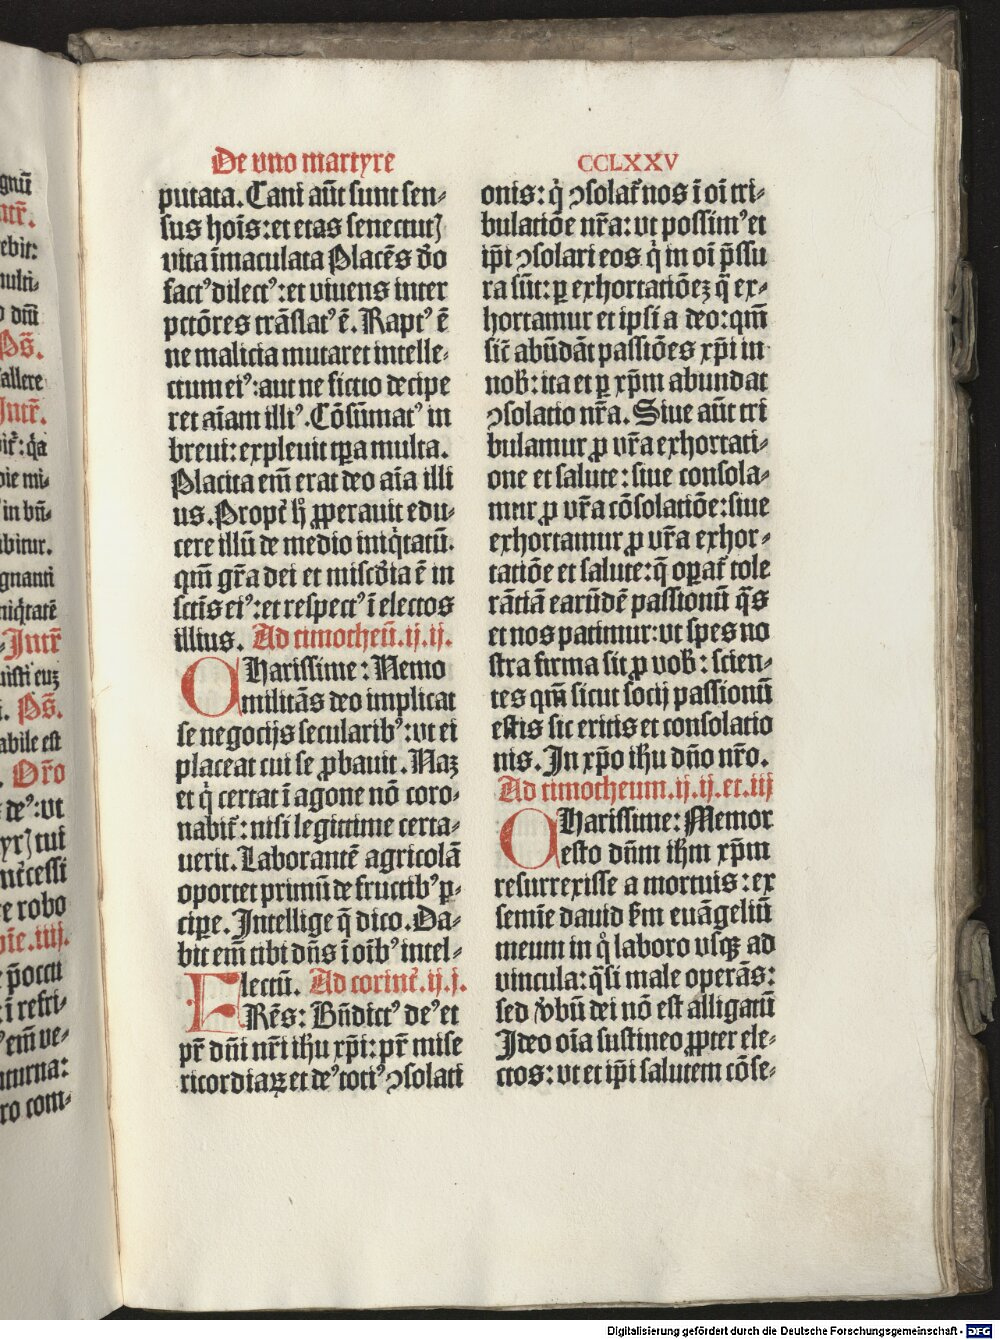 De vno martyre
CCLXXV
putata. Cani aūt sunt sen-
sus hoīs: et etas senectutꝭ
vita īmaculata Placēs dō
fact᾿ dilect᾿: et viuens inter
pctōres trāslat᾿ ē. Rapt᾿ ē
ne malicia mutaret intelle-
ctum ei᾿: aut ne fictio decipe
ret aīam illi᾿. Cōsūmat᾿ in
breui: expleuit tꝑa multa.
Placita em̄ erat deo aīa illi
us. Propt̄ h̄ ꝓperauit edu-
cere illū de medio iniq̇tatū.
qm̄ gr̄a dei et misc̄dia ē in
sctīs ei᾿: et respect᾿ ī electos
illius. Ad timotheū. ij. ij.
Charissime: Nemo
militās deo implicat
se negocijs secularib᾿: vt ei
placeat cui se ꝓbauit. Naꝫ
et q̇ certat ī agone nō coro-
nabit̄: nisi legittime certa-
uerit. Laborantē agricolā
oportet primū de fructib᾿ ꝑ-
cipe. Intellige q̄ dico. Da-
bit em̄ tibi dn̄s ī oīb᾿ intel-
lectū. Ad corint̄. ij. j.
FRēs: Bn̄dict᾿ de᾿ et
pr̄ dn̄i nr̄i ihu xp̄i: pr̄ mise
ricordiaꝝ et de᾿ toti᾿ ꝯsolati
onis: q̇ ꝯsolat̄ nos ī oī tri-
bulatiōe nr̄a: vt possim᾿ et
ip̄i ꝯsolari eos q̇ in oī p̄ssu
ra sūt: ꝑ exhortatiōeꝫ q̄ ex-
hortamur et ipsi a deo: qm̄
sic̄ abūdāt passiōes xp̄i in
nob̄: ita et ꝑ xp̄m abundat
ꝯsolatio nr̄a. Siue aūt tri
bulamur ꝓ vr̄a exhortati-
one et salute: siue consola-
mur ꝓ vr̄a cōsolatiōe: siue
exhortamur ꝓ vr̄a exhor-
tatiōe et salute: q̄ oꝑat̄ tole
rātiā earūdē passionū q̄s
et nos patimur: vt spes no
stra firma sit ꝓ vob̄: scien-
tes qm̄ sicut socij passionū
estis sic eritis et consolatio
nis. In xp̄o ihu dn̄o nr̄o.
Ad timotheum. ij. ij. et. iij
Charissime: Memor
esto dn̄m ihm xp̄m
resurrexisse a mortuis: ex
semīe dauid s̄m euāgeliū
meum in q̊ laboro vsqꝫ ad
vincula: q̄si male operās:
sed v̄bū dei nō est alligatū
Ideo oīa sustineo ꝓpter ele-
ctos: vt et ip̄i salutem cōse-
Digitalisierung gefördert durch die Deutsche Forschungsgemeinschaft - DFG